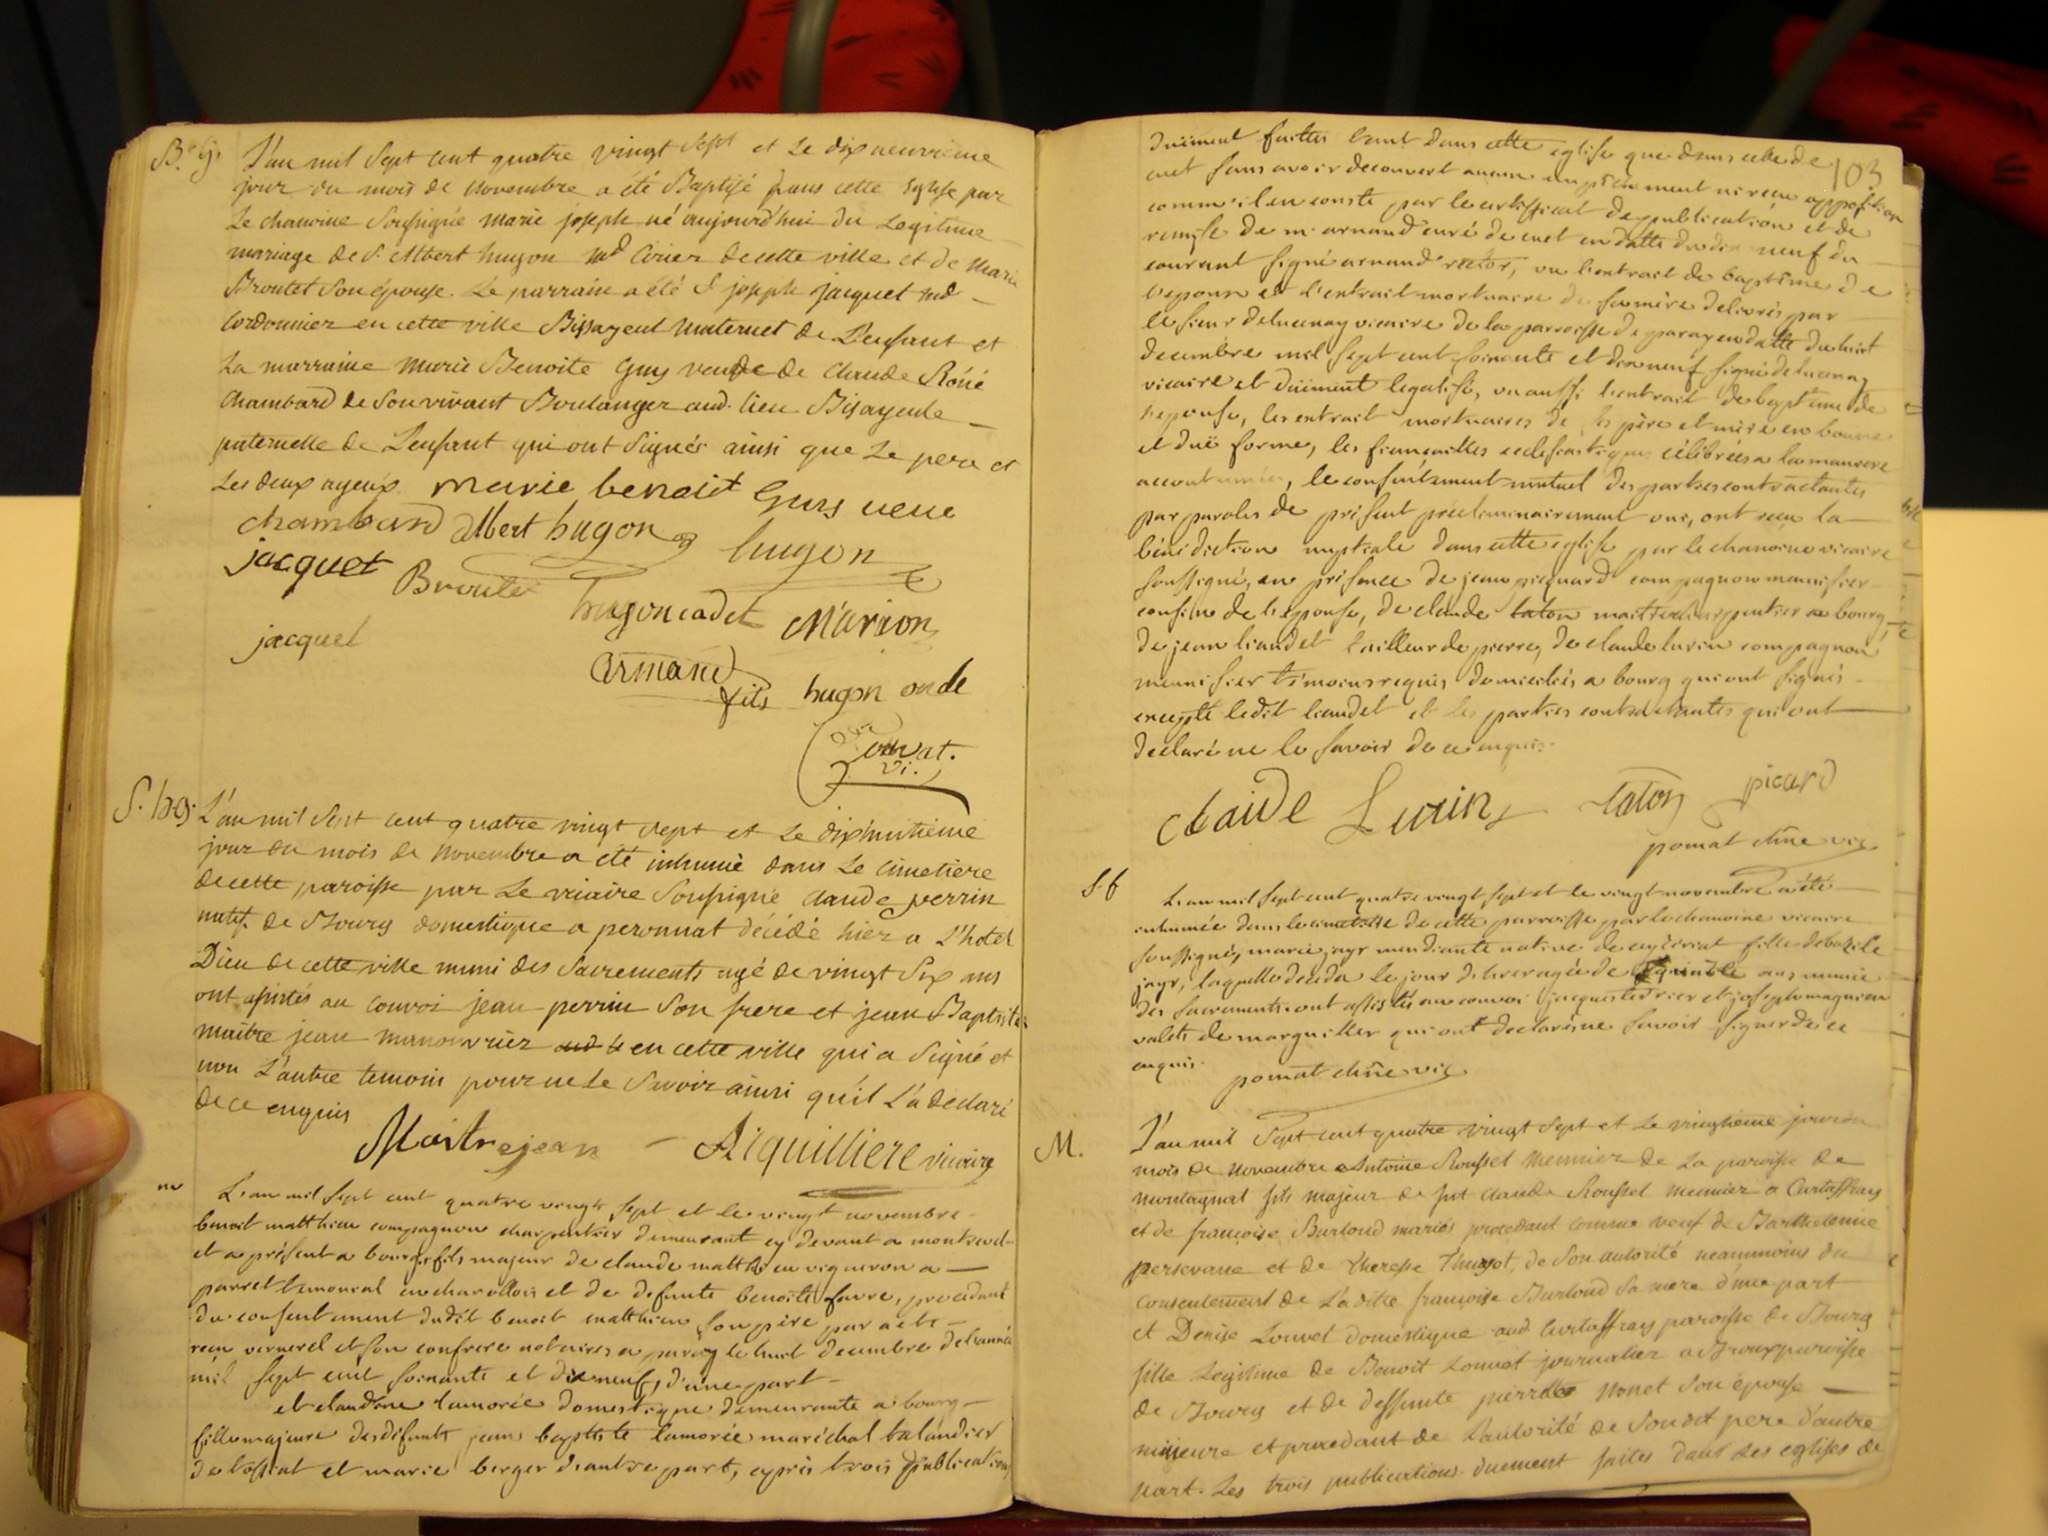 B. g. L'an mil Sept cent quatre vingt sept et Le dix neuvieme
jour du mois de novembre a été Baptisé dans cette Eglise par
Le chanoine Soussigné marie joseph né aujourd'hui du Legitime
mariage de S. Albert hugon md Cirier de cette ville et de Marie
Broutet Son épouse. Le parrain a été S joseph jacquet md
Cordonnier en cette ville Bisayeul maternel de L'enfant et
La marraine Marie Benoite Guy veuve de Claude Réné
Chambard de Son vivant Boulanger aud. lieu Bisayeule
paternelle de L'enfant qui ont Signés ainsi que Le pere et
Les deux ayeux marie benoit Guys veuve
chambard albert hugon hugon
jacquet Broutet hugon cadet Marion
jacquet armand fils hugon oncle
pomat. vi.
S. h. g. L'an mil Sept cent quatre vingt sept et Le dixhuitieme
jour du mois de novembre a été inhumé dans Le Cimetiere
de cette paroisse par Le vicaire Soussigné Claude perrin
natif de Bourg domestique a peronnat décédé hier a L'hotel
Dieu de cette ville muni des Sacrements agé de vingt Six ans
ont assistés au Convoi jean perrin Son frere et jean Baptiste
maitre jean manouvrier en cette ville qui a Signé et
non L'autre temoin pour ne Le Savoir ainsi qu'il L'a declaré
de ce enquis
Maitrejean Aiguilliere vicaire
m L'an mil sept cent quatre vingt sept et le vingt novembre
benoit matthieu compagnon charpentier demeurant cy devant a montrevel
et a présent a bourg fils majeur de claude matthieu vigneron a
parret lemonial en charollois et de defunte benoite favre, procedant
du consentement dudit benoit matthieu son père par acte
reçu vernerel et son confrere notaires a paray le huit decembre de l'année
mil sept cent soixante et dix neuf, d'une part
et claudine lamorée domestique demeurante a bourg
fille majeure des défunts jean baptiste lamorée maréchal talandier
de l'ossiat et marie berger d'autre part, après trois publications
103
duëment faittes tant dans cette eglise que dans celle de
cuet sans avoir decouvert aucun empechement ni reçu opposition
comme il en conste par le certifficat de publication et de
remise de m. arnaud curé de cuet en datte du dix neuf du
courant signé arnaud, vu l'extrait de baptême de
l'epoux et l'extrait mortuaire de sa mère delivrés par
le sieur delucenay vicaire de la parroisse de paray en datte du huit
decembre mil sept cent soixante et dix neuf signé delucenay
vicaire et duëment legalisé, vu aussi l'extrait de baptême de
l'epouse, les extrait mortuaires de ses père et mère en bonne
et duë forme, les fiançailles ecclesiastiques célébrées a la maniere
accoutumée, le consentement mutuel des parties contractantes
par paroles de présent preliminairement oui, ont reçu la
bénédiction nuptiale dans cette eglise par le chanoine vicaire
soussigné, en présence de jean picquard compagnon menuisier
cousin de l'epouse, de claude taton maitre charpentier a bourg,
de jean liaudet tailleur de pierre, de claude lurin compagnon
menuisier témoins requis domiciliés a bourg qui ont signés
excepté ledit liaudet et les parties contractantes qui ont
declaré ne le savoir de ce enquis.
Claude Lurin taton picard
pomat chne vic
S. f L'an mil sept cent quatre vingt sept et le vingt novembre a été
inhumée dans le cimetiere de cette parroisse par le chanoine vicaire
soussigné, marie jayr mendiante native de ceyzeriat fille de bazile
jayr, laquelle deceda le jour d'hier agée de ans munie
des sacrements ont assistés au convoi jacques tedrier et joseph magnien
valets de marguiller qui ont declaré ne savoir signer de ce
enquis. pomat chne vic
M. L'an mil Sept cent quatre vingt Sept et Le vingtieme jour du
mois de novembre Antoine Roussel Meunier de La paroisse de
montagnat fils majeur de fut Claude Roussel Meunier a Curtaffray
et de françoise Burloud mariés procedant comme veuf de Barthelemie
persevane et de Therese Thugot, de Son autorité neanmoins du
Consentement de Ladite françoise Burloud Sa mere d'une part
et Denise Louvet domestique aud. Curtaffray paroisse de Bourg
fille Legitime de Benoit Louvet journalier a Broux paroisse
de Bourg et de deffunte pierrette Monet Son épouse
mineure et procedant de Lautorité de Son dit pere d'autre
part. Les trois publications duement faites dans Les eglises de